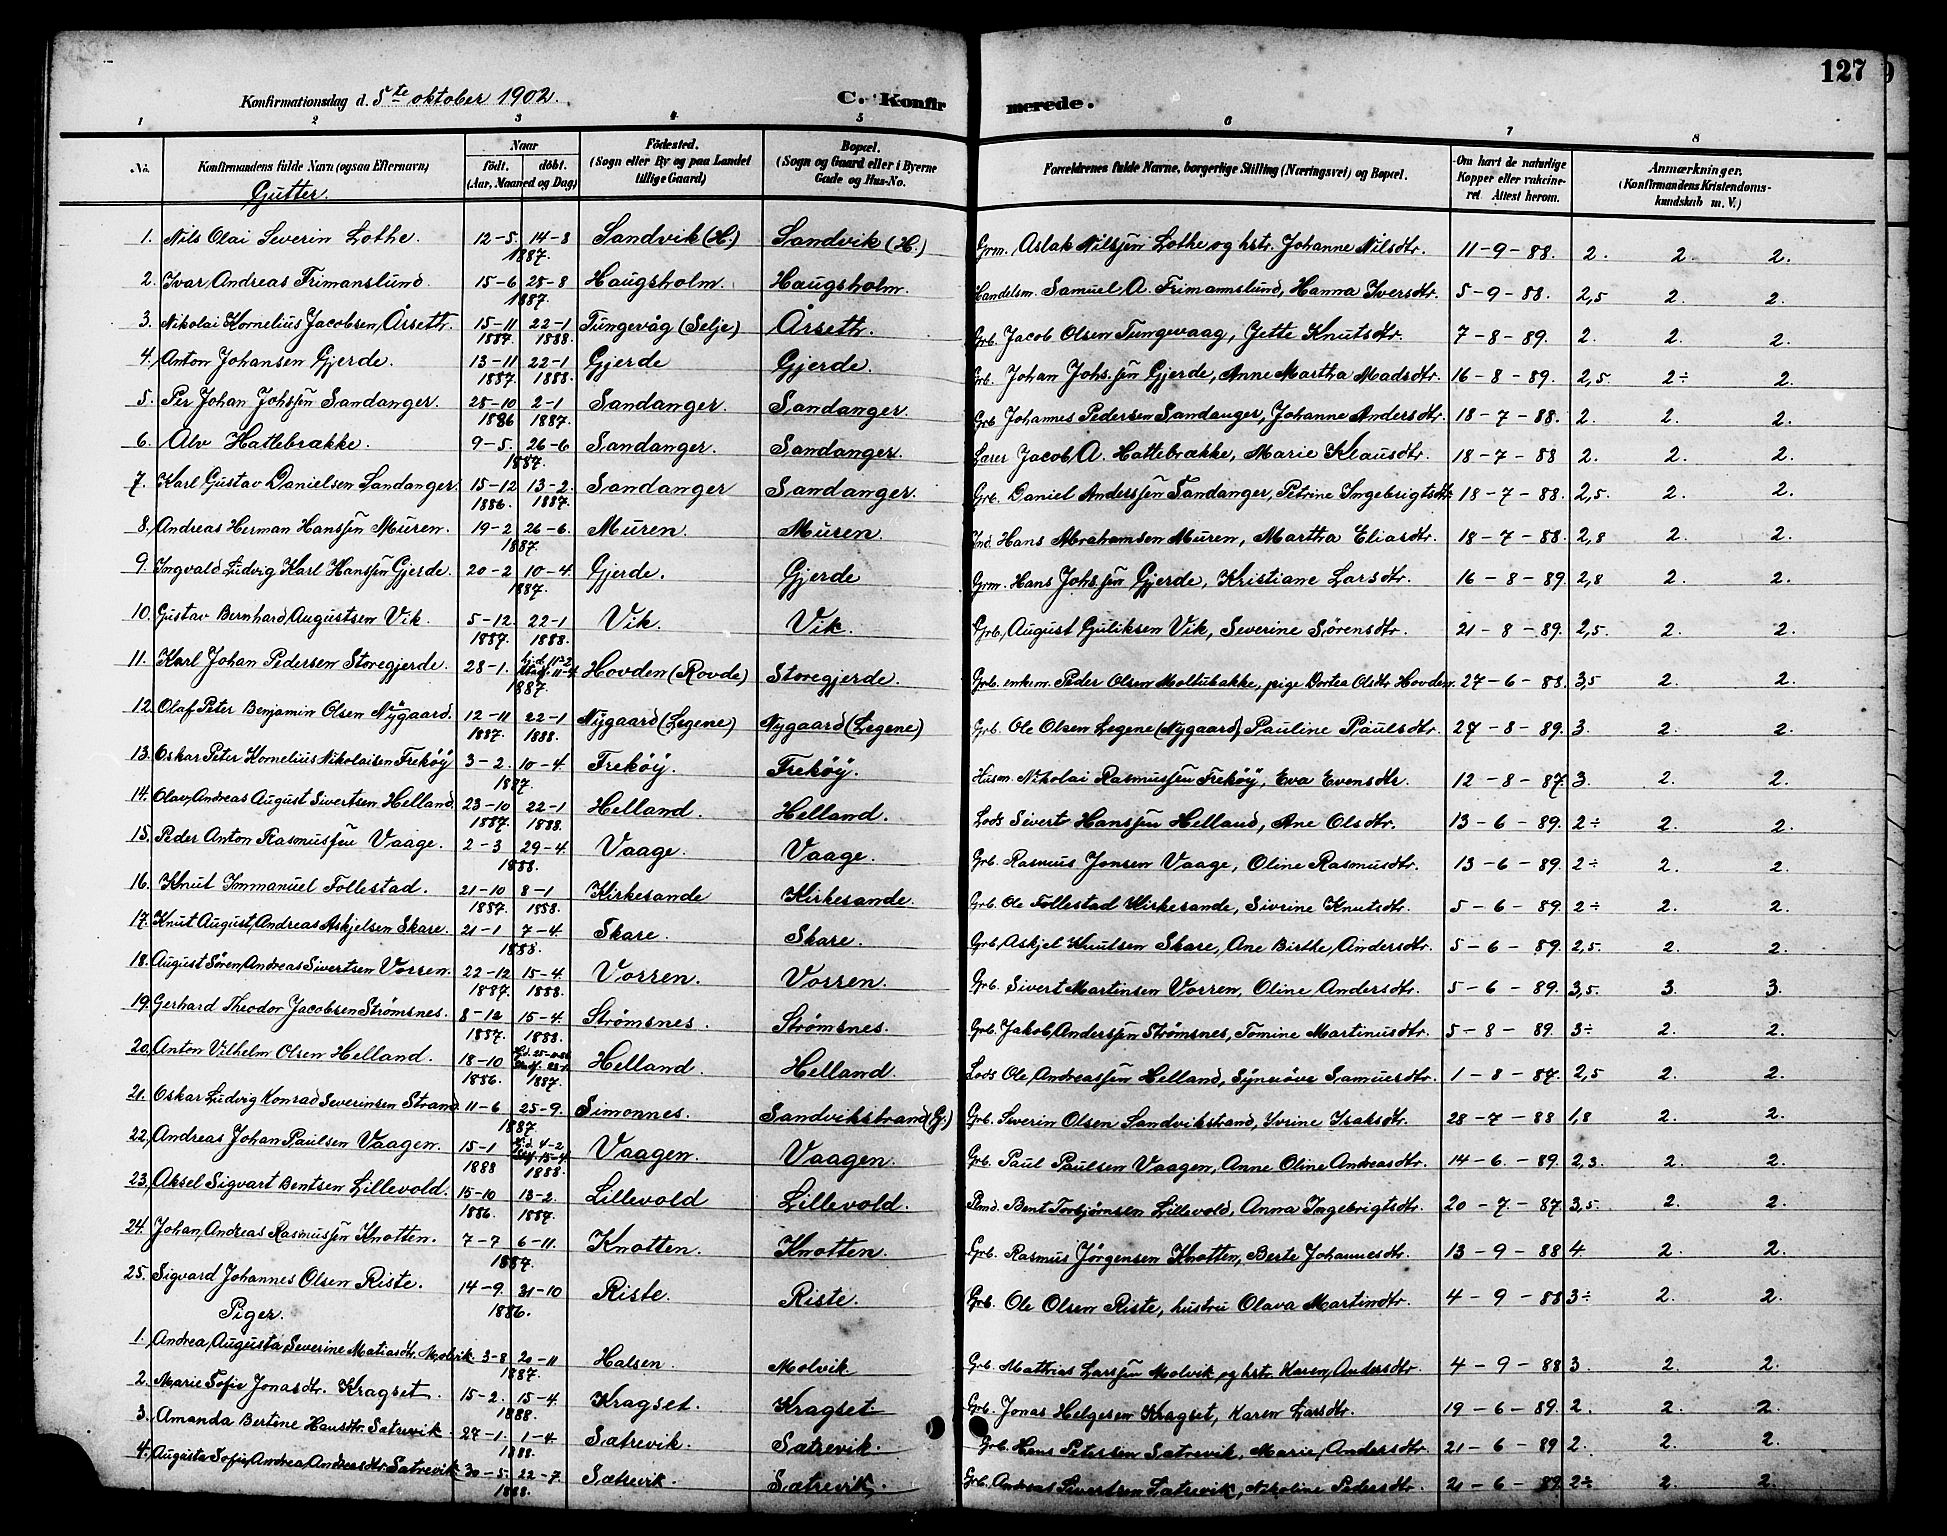 127
Konfirmationsdag d. 5te oktober 1902.
C. Konfirmerede.
1 2 3 4 5 6 7 8
No. Konfirmandens fulde Navn (ogsaa Efternavn) Naar födt. döbt. (Aar, Maaned og Dag) Födested. (Sogn eller By og paa Landet tillige Gaard) Bopæl. (Sogn og Gaard eller i Byerne Gade og Hus-No. Forældrenes fulde Navne, borgerlige Stilling (Næringsvei) og Bopæl. Om havt de naturlige Kopper eller vakcineret. Attest herom. Anmærkninger. (Konfirmandens Kristendomskundskab m. V.)
Gutter.
1. Nils Olai Severin Lothe. 12-5. 14-8 1887. Sandvik (H.) Sandvik (H.) Grm. Aslak Nilssen Lothe og hstr. Johanne Nilsdtr. 11-9-88. 2. 2. 2.
2. Ivar Andreas Frimanslund. 15-6 28-8 1887. Haugsholm. Haugsholm. Handelsm. Samuel A. Frimannslund, Hanna Iversdtr. 5-9-88. 2,5 2. 2.
3. Nikolai Kornelius Jacobsen Årsettr. 15-11 1887 22-1 1888. Tungevåg (Selje) Årsettr. Grb. Jacob Olsen Tungevaag, Jette Knutsdtr. 7-8-89. 2. 2. 2.
4. Anton Johansen Gjerde. 13-11 1887 22-1 1888. Gjerde Gjerde. Grb. Johan Johs.sen Gjerde, Anne Martha Madsdtr. 16-8-89. 2,5. 2÷ 2.
5. Per Johan Johssen Sandanger. 25-10 1886 2-1 1887. Sandanger. Sandanger. Grb. Johannes Pedersen Sandanger, Johanne Andersdtr. 18-7-88. 2. 2. 2.
6. Alv Hattebrække. 9-5. 26-6 1887. Sandanger. Sandanger. Lærer Jacob A. Hattebrække, Marie Klausdtr. 18-7-88 2. 2. 2.
7. Karl Gustav Danielsen Sandanger. 15-12 1886. 13-2. 1887. Sandanger Sandanger. Grb. Daniel Anderssen Sandanger, Petrine Ingebrigtsdtr. 18-7-88. 2,5. 2. 2.
8. Andreas Herman Hanssen Muren. 19-2 26-6. 1887. Muren. Muren. Ind. Hans Abrahamsen Muren, Martha Eliasdtr. 18-7-88. 2,8 2. 2.
9. Ingvald Ludvig Karl Hanssen Gjerde. 20-2 10-4. 1887. Gjerde. Gjerde Grm. Hans Johs.sen Gjerde, Kristiane Larsdtr. 16-8-89. 2,8 2. 2.
10. Gustav Bernhard Augustsen Vik. 5-12. 1887. 22-1 1888. Vik. Vik. Grb. August Guliksen Vik, Severine Sörensdtr. 21-8-89. 2,5. 2. 2.
11. Karl Johan Pedersen Storegjerde. 28-1. 11-4. 1887. Hovden (Rovde) Storegjerde. Grb. enkem. Peder Olsen Moltubakke, pige Dortea Olsdtr Hovden. 27-6-88. 3,5 2. 2.
12. Olaf Peter Benjamin Olsen Nygaard. 12-11 1887. 22-1 1888. Nygaard (Legene) Nygaard (Legene) Grb. Ole Olsen Legene (Nygaard), Pauline Paulsdtr. 27-8-89. 3. 2. 2.
13. Oskar Peter Kornelius Nikolaisen Frekøy 3-2. 10-4. 1887. Frekøy. Frekøy. Husm. Nikolai Rasmussen Frekøy, Eva Evensdtr. 12-8-87. 3. 2. 2.
14. Olav Andreas August Sivertsen Helland. 23-10 1887. 22-1 1888. Helland. Helland. Lods Sivert Hanssen Helland, Ane Olsdtr. 13-6-89. 2÷ 2. 2.
15. Peder Anton Rasmussen Vaage. 2-3 29-4 1888. Vaage. Vaage. Grb. Rasmus Jonsen Vaage, Oline Rasmusdtr. 13-6-89. 2÷ 2. 2.
16. Knut Immanuel Follestad. 21-10 1887. 8-1 1888. Kirkesande Kirkesande. Grb. Ole Follestad Kirkesande, Sivrine Knutsdtr. 5-6-89. 2÷ 2. 2.
17. Knut August Andreas Askjelsen Skare. 21-1 7-4. 1888. Skare. Skare. Grb. Askjel Knutsen Skare, Ane Birthe Andersdtr. 5-6-89. 2,5. 2. 2.
18. August Sören Andreas Sivertsen Vorren. 22-12 1887. 15-4. 1888. Vorren. Vorren. Grb. Sivert Martinsen Vorren, Oline Andersdtr. 5-6-89. 3,5. 3. 3.
19. Gerhard Theodor Jacobsen Strømsnes. 8-12 1887. 15-4. 1888. Strømsnes. Strømsnes. Grb. Jakob Anderssen Strømsnes, Tomine Martinusdtr. 5-8-89. 3÷ 2. 2.
20. Anton Vilhelm Olsen Helland. 18-10 1886. 1887. Helland. Helland. Lods Ole Andreassen Helland, Synnöve Samuesdtr. 1-8-87. 2,5 2. 2.
21. Oskar Ludvig Konrad Severinsen Strand. 11-6 25-9. 1887. Simonnes. Sandvikstrand (G.) Grb. Severin Olsen Sandvikstrand, Ivrine Isaksdtr. 28-7-88 1,8 2. 2.
22. Andreas Johan Paulsen Vaagen. 15-1 1888 4-2 15-4. 1888. Vaagen. Vaagen. Grb. Paul Paulsen Vaagen, Anne Oline Andreasdtr. 14-6-89. 2,3. 2. 2.
23. Aksel Sigvart Bentsen Lillevold. 15-10 1886. 13-2. 1887. Lillevold Lillevold. Bent Torbjørnsen Lillevold, Anna Ingebrigtsdtr. 20-7-87. 3,5. 2. 2.
24. Johan Andreas Rasmussen Knotten. 7-7 6-11. 1887. Knotten. Knotten. Grb. Rasmus Jörgensen Knotten, Berte Johannesdtr. 13-9-88 4 2. 2.
25. Sigvard Johannes Olsen Riste. 14-9. 31-10 1886. Riste. Riste. Grb. Ole Olsen Riste, hustru Olava Martindtr. 4-9-88 3÷ 2. 2.
Piger.
1. Andrea Augusta Severine Matiasdtr. Molvik 3-8 20-11 1887. Halsen. Molvik Grb. Mathias Larssen Molvik, og hstr. Karen Andersdtr. 4-9-88 3. 2. 2.
2. Marie Sofie Jonasdtr. Kragset. 15-2. 15-4. 1888. Kragset. Kragset Grb. Jonas Helgesen Kragset, Karen Larsdtr. 19-6-89. 2. 2. 2.
3. Amanda Bertine Hansdtr. Sætrevik. 27-1. 1-4. 1888. Sætrevik. Sætrevik. Grb. Hans Petersen Sætrevik, Marie Andersdtr. 21-6-89 2. 2. 2.
4. Augusta Sofie Andrea Andreasdtr. Sætrevik 30-5. 22-7. 1888. Sætrevik. Sætrevik. Grb. Andreas Sivertsen Sætrevik, Nikoline Pedersdtr. 21-6-89. 2÷ 2. 2.